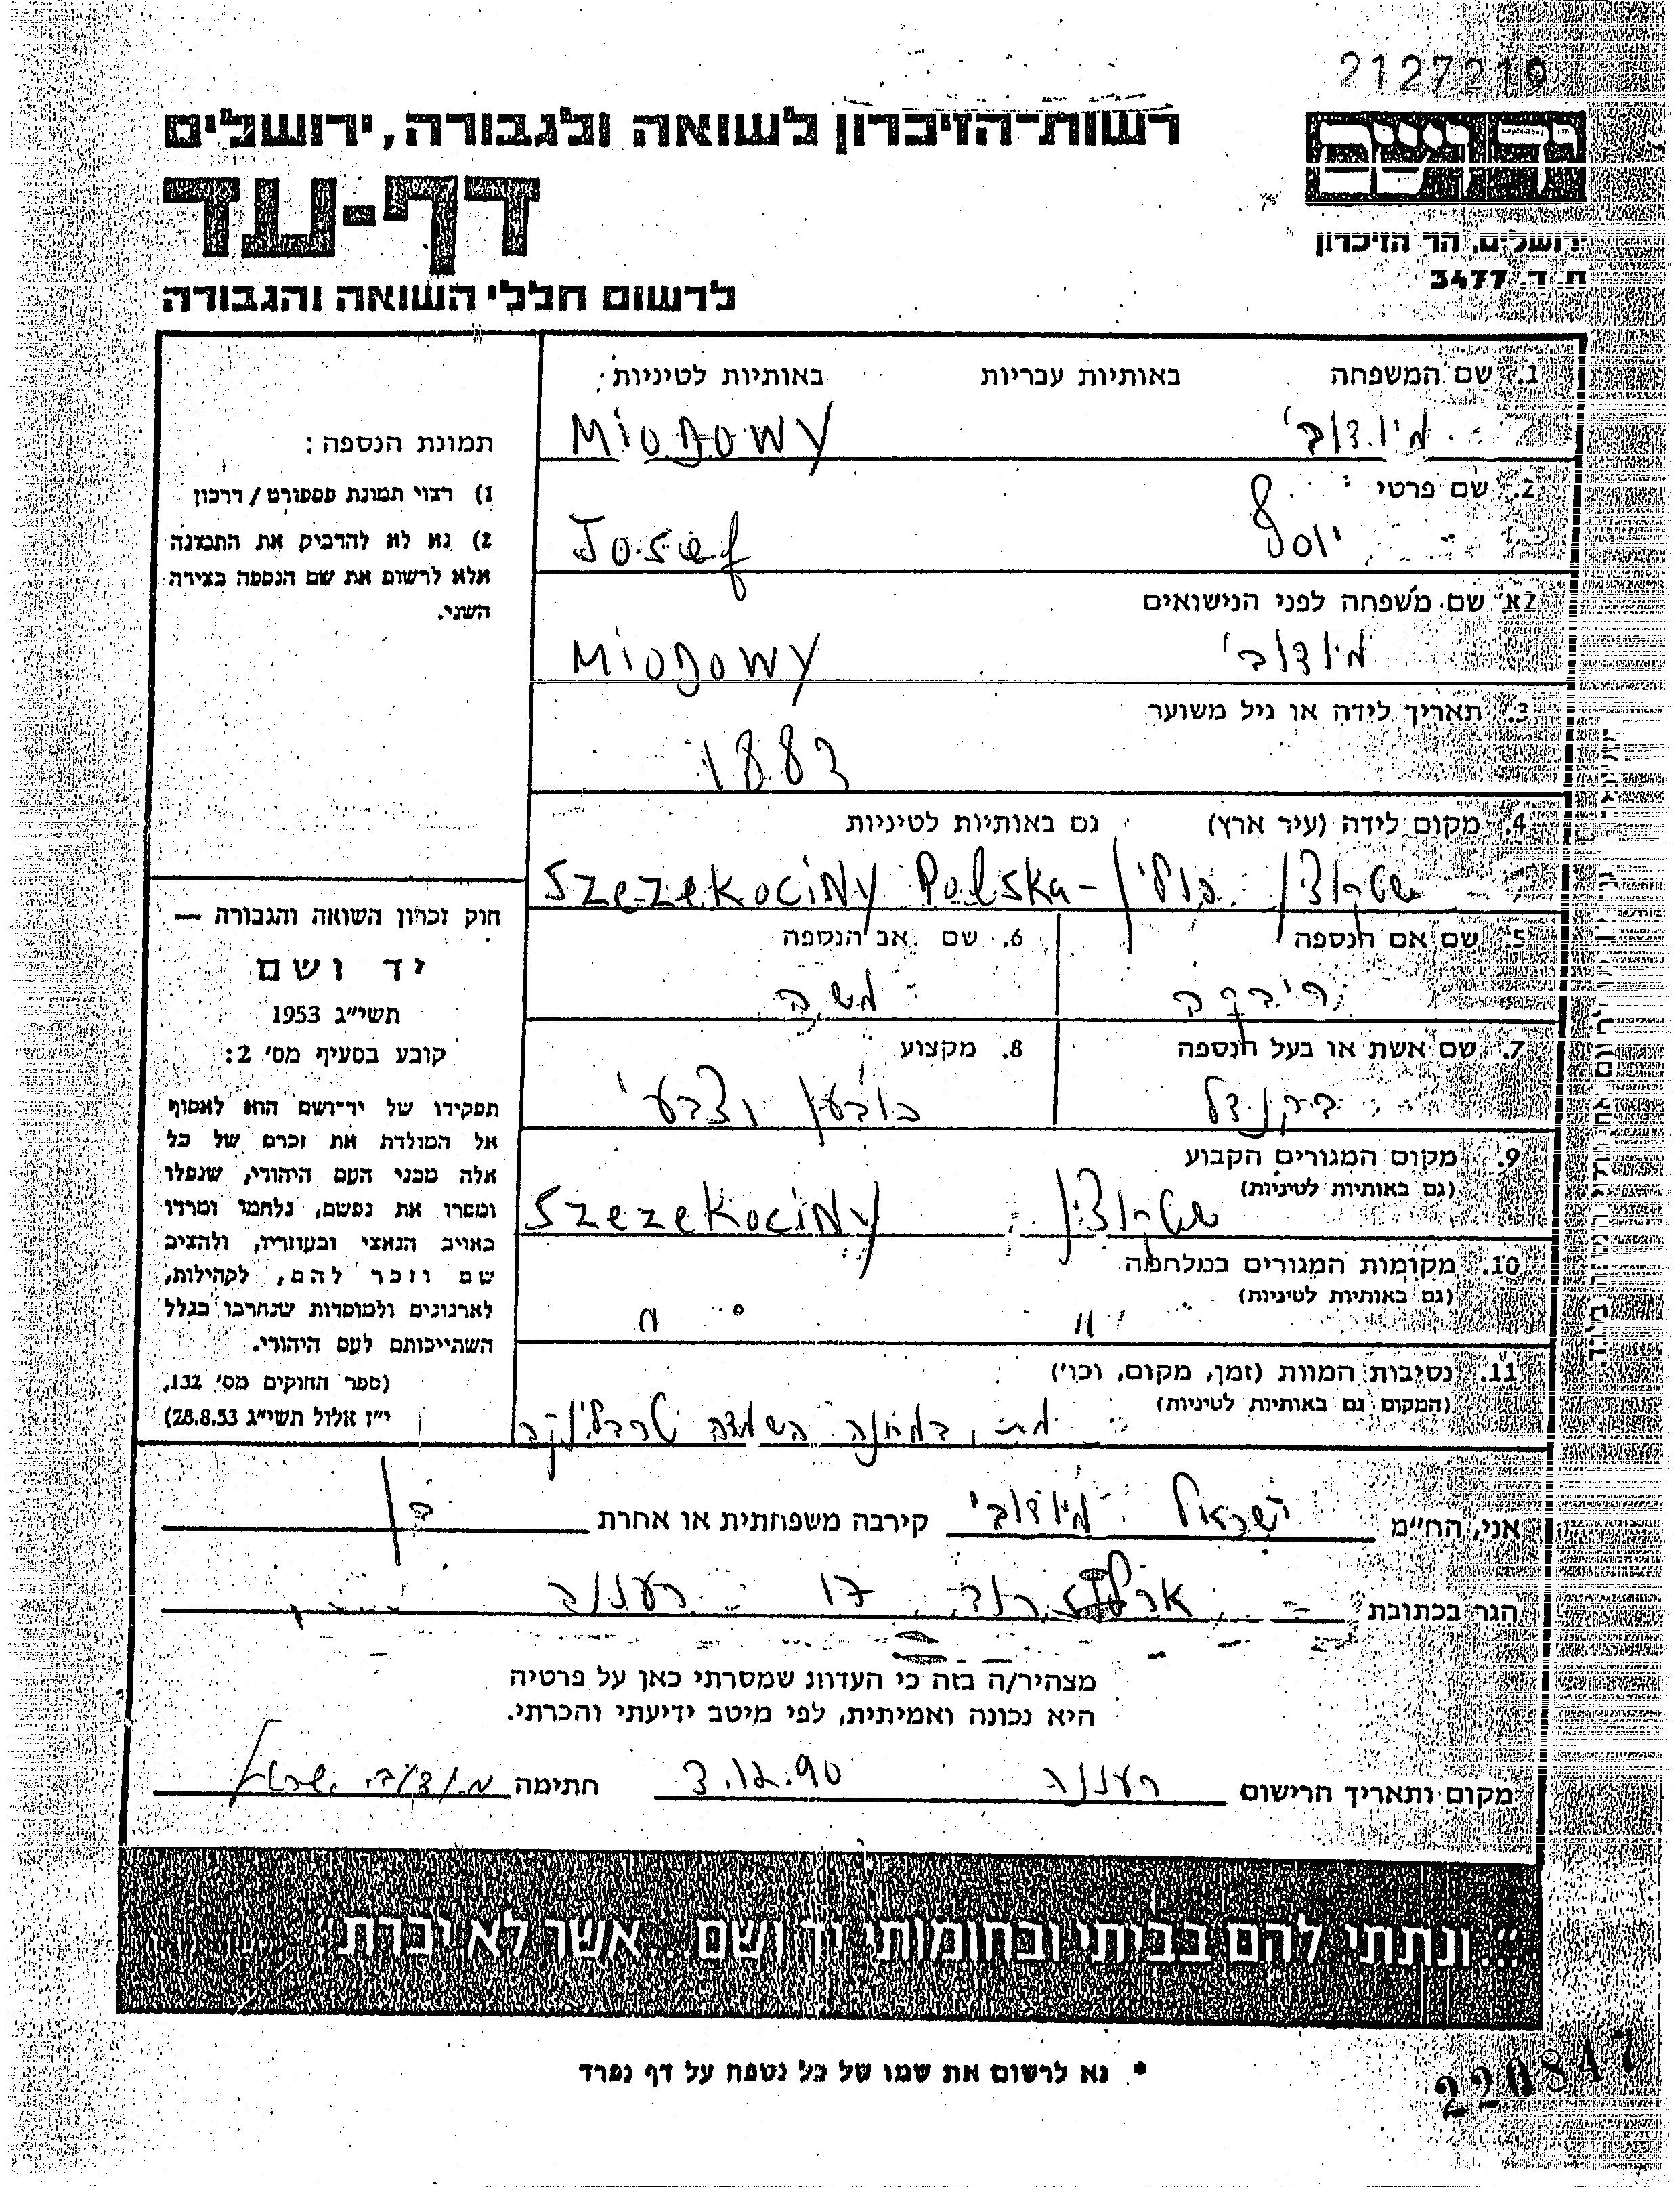 2127219
רשות-הזיכרון לשואה ולגבורה, ירושלים
דף-עד
לרשום חללי השואה והגבורה
יד ושם
ירושלים, הר הזיכרון
ת.ד. 3477
1. שם המשפחה באותיות עבריות באותיות לטיניות:
מיודובי Miodowy
2. שם פרטי
יוסף Josef
2א שם משפחה לפני הנישואים
מיודובי Miodowy
3. תאריך לידה או גיל משוער
1883
4. מקום לידה (עיר ארץ) גם באותיות לטיניות
פולין - Szczekociny Polska
5. שם אם הנספה 6. שם אב הנספה
ריבקה משה
7. שם אשת או בעל הנספה 8. מקצוע
כובען
9. מקום המגורים הקבוע
(גם באותיות לטיניות)
Szczekociny
10. מקומות המגורים במלחמה
(גם באותיות לטיניות)
" "
11. נסיבות המוות (זמן, מקום, וכו')
(המקום גם באותיות לטיניות)
מת, במחנה השמדה טרבלינקה
תמונת הנספה:
1) רצוי תמונת פספורט / דרכון
2) נא לא להדביק את התמונה
אלא לרשום את שם הנספה בצידה
השני.
חוק זכרון השואה והגבורה —
יד ושם
תשי"ג 1953
קובע בסעיף מס' 2:
תפקידו של יד-ושם הוא לאסוף
אל המולדת את זכרם של כל
אלה מבני העם היהודי, שנפלו
ומסרו את נפשם, נלחמו ומרדו
באויב הנאצי ובעוזריו, ולהציב
שם וזכר להם, לקהילות,
לארגונים ולמוסדות שנחרבו בגלל
השתייכותם לעם היהודי.
(ספר החוקים מס' 132,
י"ז אלול תשי"ג 28.8.53)
אני, הח"מ ישראל מיודובי קירבה משפחתית או אחרת בן
הגר בכתובת 17 רעננה
מצהיר/ה בזה כי העדות שמסרתי כאן על פרטיה
היא נכונה ואמיתית, לפי מיטב ידיעתי והכרתי.
מקום ותאריך הרישום רעננה 3.12.90 חתימה מיודובי ישראל
"...ונתתי להם בביתי ובחומותי יד ושם...אשר לא יכרת"
* נא לרשום את שמו של כל נספה על דף נפרד
220847